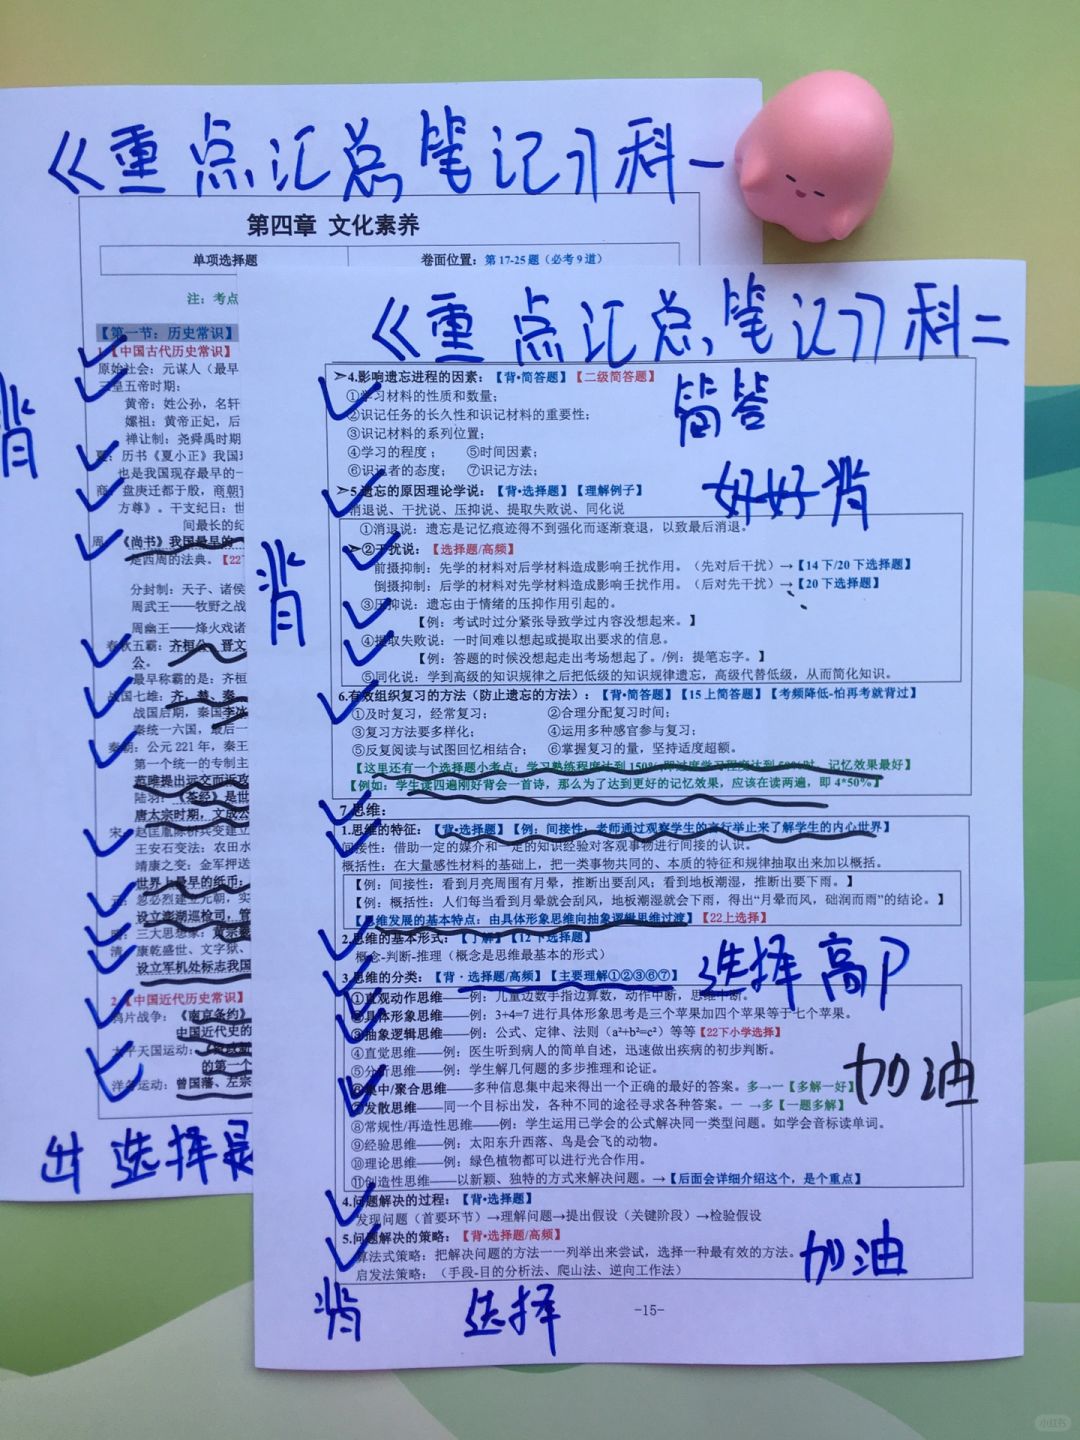 《重点汇总笔记》科一
第四章 文化素养
单项选择题 卷面位置：第17-25题（必考9道）
注：考点
【第一节：历史常识】
1.【中国古代历史常识】
原始社会：元谋人（最早
三皇五帝时期：
黄帝：姓公孙，名轩
嫘祖：黄帝正妃，后
禅让制：尧舜禹时期
夏：历书《夏小正》我国现
也是我国现存最早的一
商：盘庚迁都于殷，商朝
方尊》。干支纪日：世
间最长的纪
周：《尚书》我国最早的一
是西周的法典。【22
分封制：天子、诸侯
周武王——牧野之战
周幽王——烽火戏诸
春秋五霸：齐桓公、晋文
公。
最早称霸的是：齐桓
战国七雄：齐、楚、秦
战国后期，秦国李冰
秦统一六国，最后一
秦朝：公元221年，秦王
第一个统一的专制主
范雎提出远交而近攻
陆羽：《茶经》是世
唐太宗时期，文成公
宋：赵匡胤陈桥兵变建立
王安石变法：农田水
靖康之变：金军押送
世界上最早的纸币：
元：忽必烈建立元朝，实
设立澎湖巡检司，管
明：三大思想家：黄宗羲
清：康乾盛世、文字狱、
设立军机处标志我国
2.【中国近代历史常识】
鸦片战争：《南京条约》
中国近代史的
太平天国运动：
的第一个
洋务运动：曾国藩、左宗
背
出 选择
《重点汇总笔记》科二
➢4.影响遗忘进程的因素：【背•简答题】【二级简答题】
①学习材料的性质和数量；
②识记任务的长久性和识记材料的重要性；
③识记材料的系列位置；
④学习的程度； ⑤时间因素；
⑥识记者的态度； ⑦识记方法；
简答
➢5.遗忘的原因理论学说：【背•选择题】【理解例子】
好好背
消退说、干扰说、压抑说、提取失败说、同化说
①消退说：遗忘是记忆痕迹得不到强化而逐渐衰退，以致最后消退。
➢②干扰说：【选择题/高频】
前摄抑制：先学的材料对后学材料造成影响干扰作用。（先对后干扰）→【14下/20下选择题】
倒摄抑制：后学的材料对先学材料造成影响干扰作用。（后对先干扰）→【20下选择题】
③压抑说：遗忘由于情绪的压抑作用引起的。
【例：考试时过分紧张导致学过内容没想起来。】
背
④提取失败说：一时间难以想起或提取出要求的信息。
【例：答题的时候没想起走出考场想起了。/例：提笔忘字。】
⑤同化说：学到高级的知识规律之后把低级的知识规律遗忘，高级代替低级，从而简化知识。
6.有效组织复习的方法（防止遗忘的方法）：【背•简答题】【15上简答题】【考频降低-怕再考就背过】
①及时复习，经常复习； ②合理分配复习时间；
③复习方法要多样化； ④运用多种感官参与复习；
⑤反复阅读与试图回忆相结合； ⑥掌握复习的量，坚持适度超额。
【这里还有一个选择题小考点：学习熟练程度达到150%即过度学习程度达到50%时，记忆效果最好】
【例如：学生读四遍刚好背会一首诗，那么为了达到更好的记忆效果，应该在读两遍，即 4*50%】
7.思维：
1.思维的特征：【背•选择题】【例：间接性：老师通过观察学生的言行举止来了解学生的内心世界】
间接性：借助一定的媒介和一定的知识经验对客观事物进行间接的认识。
概括性：在大量感性材料的基础上，把一类事物共同的、本质的特征和规律抽取出来加以概括。
【例：间接性：看到月亮周围有月晕，推断出要刮风；看到地板潮湿，推断出要下雨。】
【例：概括性：人们每当看到月晕就会刮风，地板潮湿就会下雨，得出“月晕而风，础润而雨”的结论。】
【思维发展的基本特点：由具体形象思维向抽象逻辑思维过渡】【22上选择】
2.思维的基本形式：【了解】【12下选择题】
概念-判断-推理（概念是思维最基本的形式）
3.思维的分类：【背•选择题/高频】【主要理解①②③⑥⑦】
选择高P
①直观动作思维——例：儿童边数手指边算数，动作中断，思维中断。
②具体形象思维——例：3+4=7进行具体形象思考是三个苹果加四个苹果等于七个苹果。
③抽象逻辑思维——例：公式、定律、法则（a²+b²=c²）等等【22下小学选择】
④直觉思维——例：医生听到病人的简单自述，迅速做出疾病的初步判断。
⑤分析思维——例：学生解几何题的多步推理和论证。
⑥集中/聚合思维——多种信息集中起来得出一个正确的最好的答案。多→一【多解一好】
加油
⑦发散思维——同一个目标出发，各种不同的途径寻求各种答案。一→多【一题多解】
⑧常规性/再造性思维——例：学生运用已学会的公式解决同一类型问题。如学会音标读单词。
⑨经验思维——例：太阳东升西落、鸟是会飞的动物。
⑩理论思维——例：绿色植物都可以进行光合作用。
⑪创造性思维——以新颖、独特的方式来解决问题。→【后面会详细介绍这个，是个重点】
4.问题解决的过程：【背•选择题】
发现问题（首要环节）→理解问题→提出假设（关键阶段）→检验假设
5.问题解决的策略：【背•选择题/高频】
算法式策略：把解决问题的方法一一列举出来尝试，选择一种最有效的方法。
加油
启发法策略：（手段-目的分析法、爬山法、逆向工作法）
背 选择
-15-
小红书